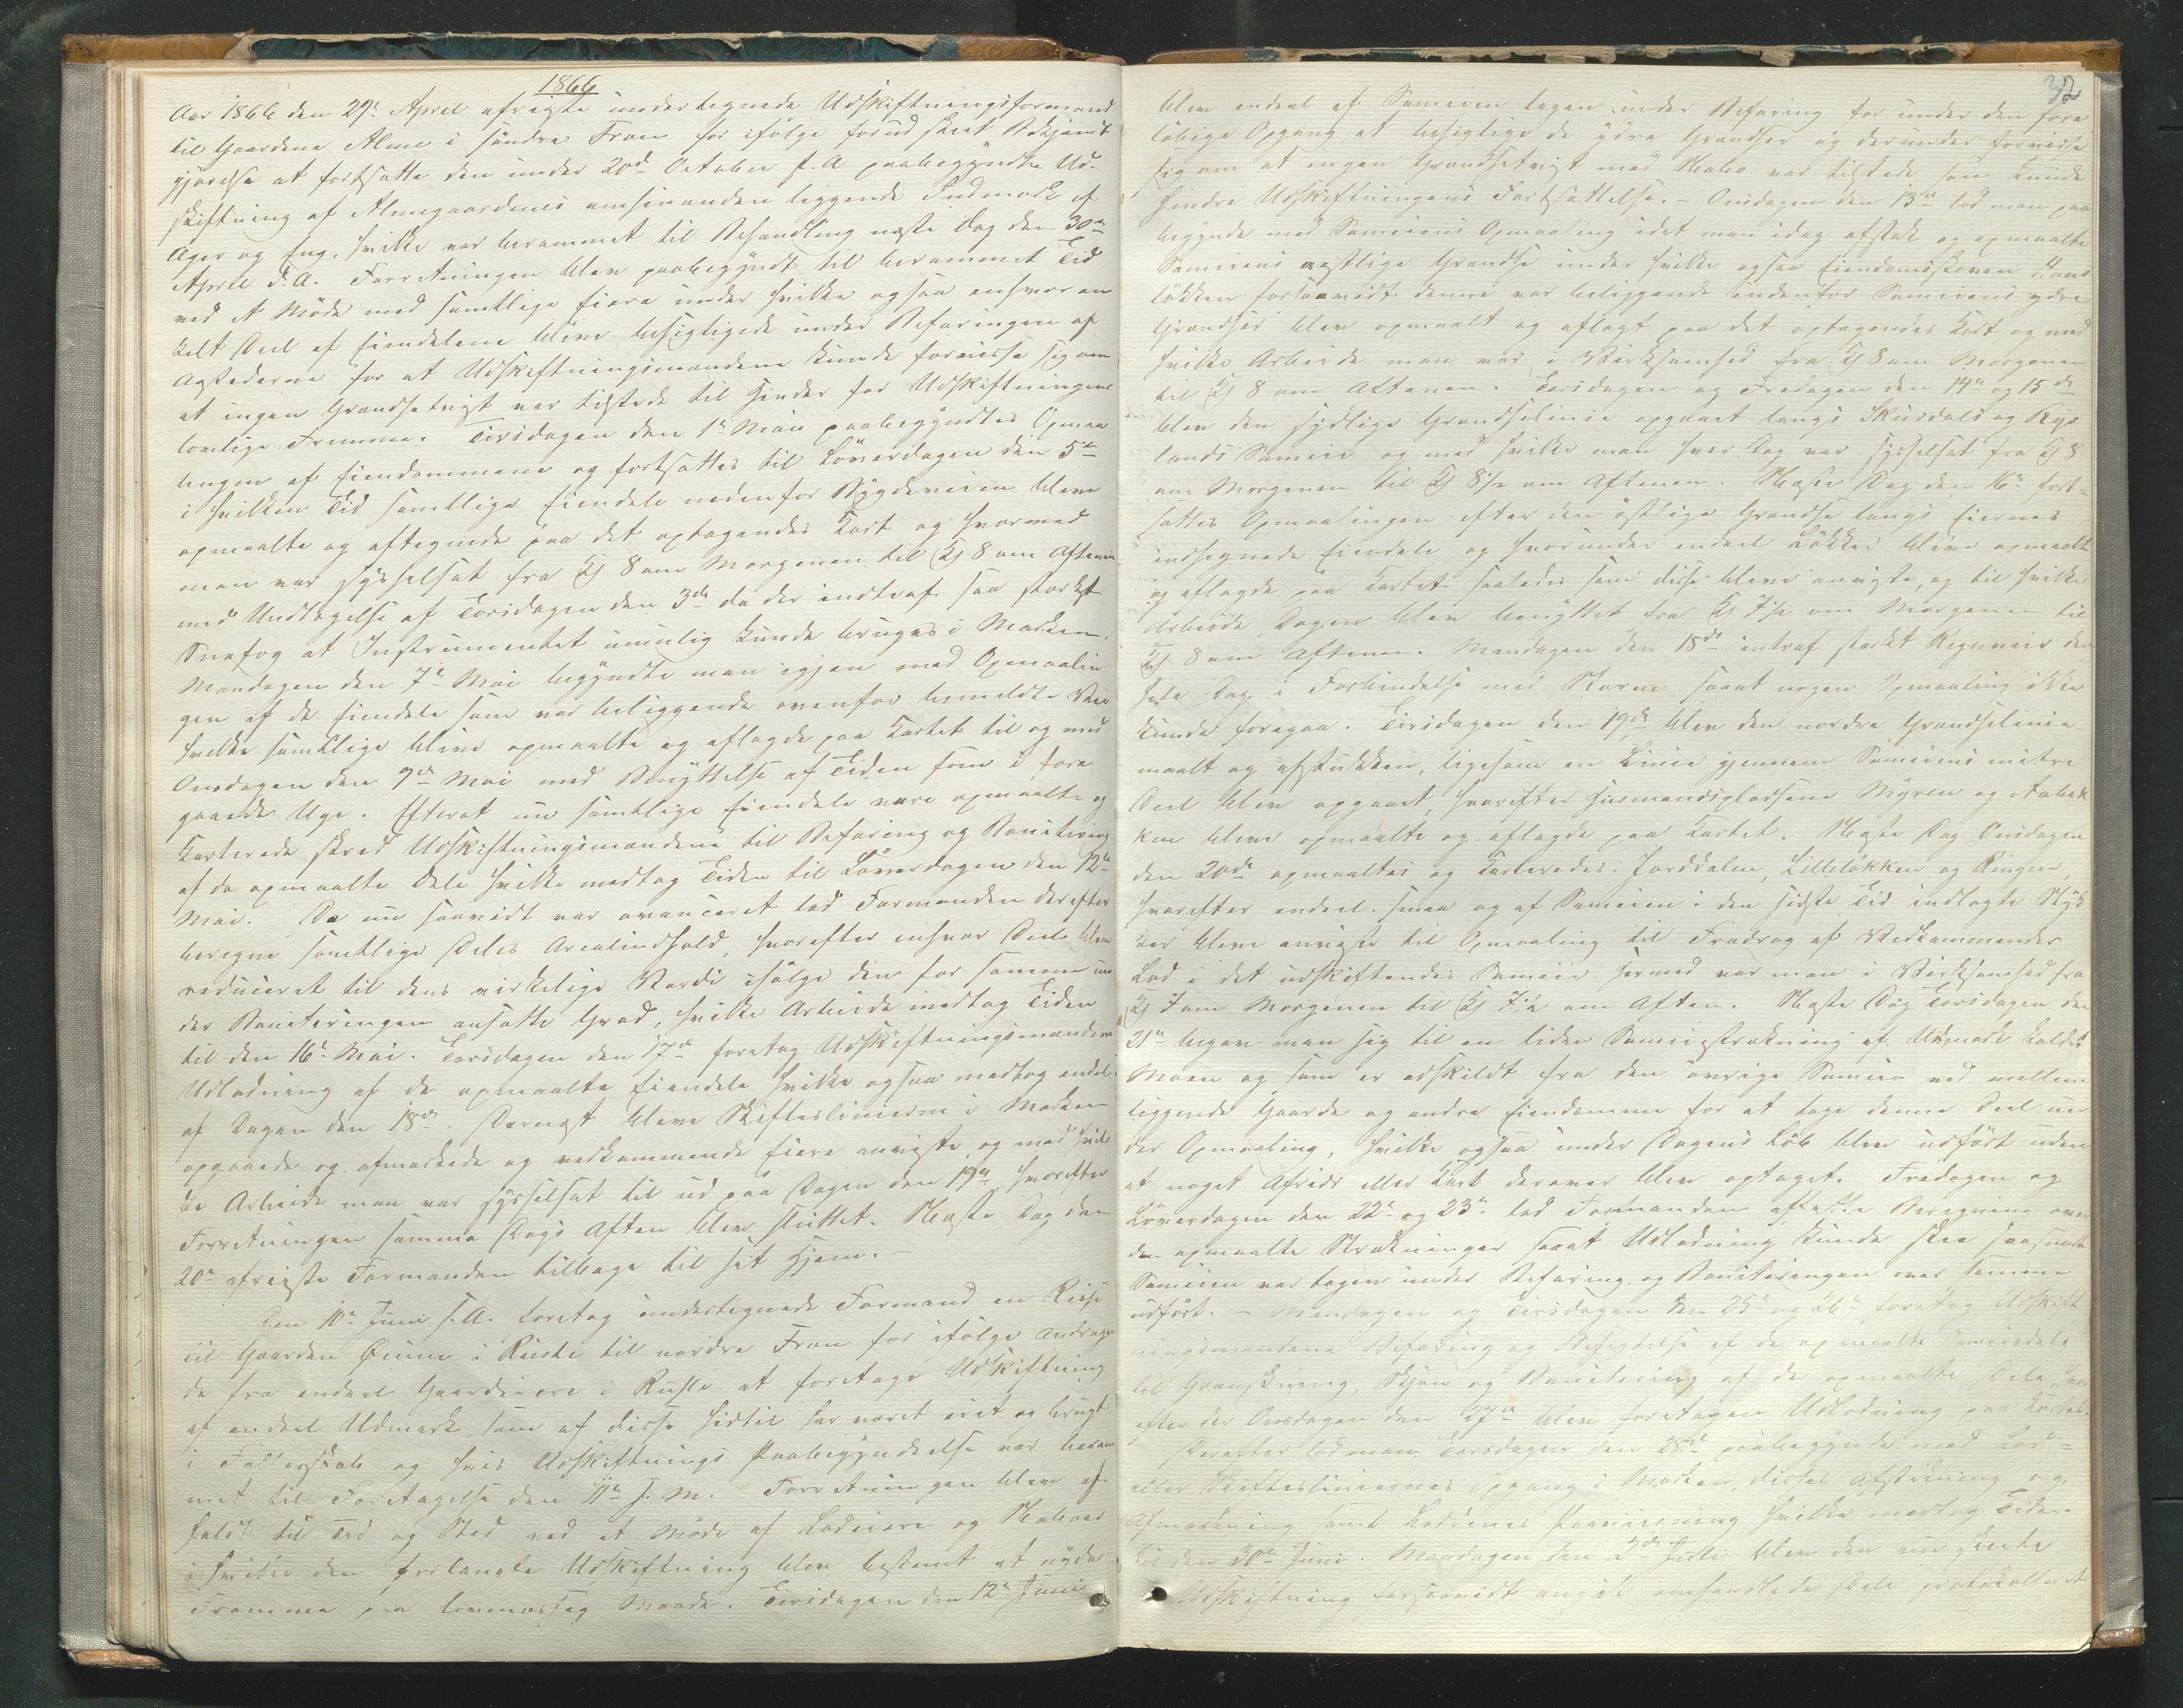 1866
Aar 1866 den 29de April afreiste undertegnede Udskiftningsformand
til Gaardene Alme i søndre Fron for ifølge forud skeet Bekjendt
gjørelse at fortsætte den under 20de October f. A. paabegyndte Ud-
skiftning af Almegaardenes omhinanden liggende Indmark af
Ager og Eng, hvilke var berammet til Behandling næste Dag den 30te
April d. A. Forretningen blev paabegyndt til berammet Tid
ved et Møde med samtlige Eiere under hvilke ogsaa enhver en
kelt Deel af Eiendelene bleve besigtigede under Befaringen af
Aastederne for at Udskiftningsmændene kunde forvisse sig om
at ingen Grændsetvist var tilstede til Hinder for Udskiftningens
lovlige Fremme. Tirsdagen den 1ste Mai paabegyndtes Opmaa
lingen af Eiendommene og fortsattes til Løverdagen den 5te
i hvilken Tid samtlige Eiendele nedenfor Bygdeveien bleve
opmaalte og aftegnede paa det optagendes Kart og hvormed
man var sysselsat fra Kl 8 om Morgenen til Kl 8 om Aftenen
med Undtagelse af Torsdagen den 3de da der indtraf saa stærkt
Snefog at Instrumentet umulig kunde bruges i Marken.
Mandagen den 7de Mai begyndte man igjen med Opmaalin
gen af de Eiendele som var beliggende ovenfor bemeldte Vei
hvilke samtlige bleve opmaalte og aflagde paa Kartet til og med
Onsdagen den 9de Mai med Benyttelse af Tiden som i fore
gaaende Uge. Efterat nu samtlige Eiendele vare opmaalte og
karterede skred Udskiftningsmændene til Befaring og Bonitering
af de opmaalte Dele hvilke medtog Tiden til Løverdagen den 12te
Mai. Da nu saavidt var avanceret lod Formanden derefter
beregne samtlige Deles Arealindhold, hvorefter enhver Deel blev
reduceret til dens virkelige Værdi ifølge den for samme un
der Boniteringen ansatte Grad, hvilke Arbeide medtog Tiden
til den 16de Mai. Torsdagen den 17de foretog Udskiftningsmændene
Udlodning af de opmaalte Eiendele hvilke ogsaa medtog endel
af Dagen den 18de. Dernæst bleve Skifteslinierne i Marken
opgaaede og afmærkede og vedkommende Eiere anviste, og med hvil
ke Arbeide man var sysselsat til ud paa Dagen den 19de, hvorefter
Forretningen samme Dags Aften blev sluttet. Næste Dag den
20de afreiste Formanden tilbage til sit Hjem. –
Den 10de Juni s. A. foretog undertegnede Formand en Reise
til Gaarden Øiine i Ruste til nordre Fron for ifølge Andragen
de fra endeel Gaardeiere i Ruste at foretage Udskiftning
af endeel Udmark, som af disse hidtil har været eiet og brugt
i Fællesskab og hvis Udskiftnings Paabegyndelse var beram
met til Foretagelse den 11te s. M. Forretningen blev af
holdt til Tid og Sted ved et Møde af Lodeiere og Naboer
i hvilke den forlangte Udskiftning blev bestemt at nyde
Fremme paa lovmæssig Maade. Tirsdagen den 12te Juni
32
blev endeel af Sameien tagen under Befaring for under den fore
løbige Opgang at besigtige de ydre Grændser og derunder forvisse
sig om at ingen Grændsetvist med Nabo var tilstede som kunde
hindre Udskiftningens Fortsættelse. – Onsdagen den 13de lod man paa
begynde med Sameiens Opmaaling idet man idag afstak og opmaalte
Sameiens vestlige Grændse under hvilke ogsaa Eiendomsskoven Hans
løkken forsaavidt denne var beliggende indenfor Sameiens ydre
Grændser blev opmaalt og aflagt paa det optagendes Kart og med
hvilke Arbeide man var i Virksomhed fra Kl 8 om Morgenen
til Kl 8 om Aftenen. Torsdagen og Fredagen den 14de og 15de
blev den sydlige Grændselinie opgaaet langs Skurdals og Rys
lands Sameie og med hvilke man hver Dag var sysselsat fra Kl 8
om Morgenen til Kl 8½ om Aftenen. Næste Dag den 16de fort-
sattes Opmaalingen efter den østlige Grændse langs Eiernes
indhegnede Eiendele og hvorunder endeel Løkker bleve opmaalt
og aflagde paa Kartet saaledes som disse bleve anviste, og til hvilke
Arbeide Dagen blev benyttet fra Kl 7½ om Morgenen til
Kl 8 om Aftenen. Mandagen den 18de indtraf stærkt Regnveir den
hele Dag i Forbindelse med Storm saaat nogen Opmaaling ikke
kunde foregaa. Tirsdagen den 19de blev den nordre Grændselinie
maalt og afstukken, ligesom en Linie gjennem Sameiens midtre
Deel blev opgaaet, hvorefter Husmandspladsene Myren og Aabak
ken bleve opmaalte og aflagde paa Kartet. Næste Dag Onsdagen
den 20de opmaaltes og karteredes: Jorddalen, Lilleløkken og Ringen,
hvorefter endeel smaa og af Sameien i den sidste Tid indlagte Styk
ker bleve anviste til Opmaaling til Fradrag af Vedkommendes
Lod i det udskiftendes Sameie. Hermed var man i Virksomhed fra
Kl 7 om Morgenen til Kl 7½ om Aften. Næste Dag Torsdagen den
21de begav man sig til en liden Sameiestrækning af Udmark kaldet
Moen og som er adskildt fra den øvrige Sameie ved mellem
liggende Gaarde og andre Eiendomme for at tage denne Deel un
der Opmaaling, hvilke ogsaa under Dagens Løb blev udført uden
at noget Afrids eller Kart derover blev optaget. Fredagen og
Løverdagen den 22de og 23de lod Formanden aflægge Beregning over
den opmaalte Strækninger saaat Udlodning kunde skee saasnart
Sameien var tagen under Befaring og Boniteringen over samme
udført. – Mandagen og Tirsdagen den 25de og 26de foretog Udskift
ningsmændene Befaring og Besigtelse af de opmaalte Sameiedele
til Granskning, Skjøn og Bonitering af de opmaalte Dele, hvor
efter der Onsdagen den 27de blev foretagen Udlodning paa Kartet.
Derefter lod man Torsdagen den 28de paabegynde med Lod-
eller Skifteslinernes Opgang i Marken, disses Afstikning og
Afmærkning samt Loddenes Paavisning hvilke medtog Tiden
til den 30te Juni. Mandagen den 2de Juli blev den nu skeede
Udskiftning forsaavidt angik omhandlede Dele protokolleret